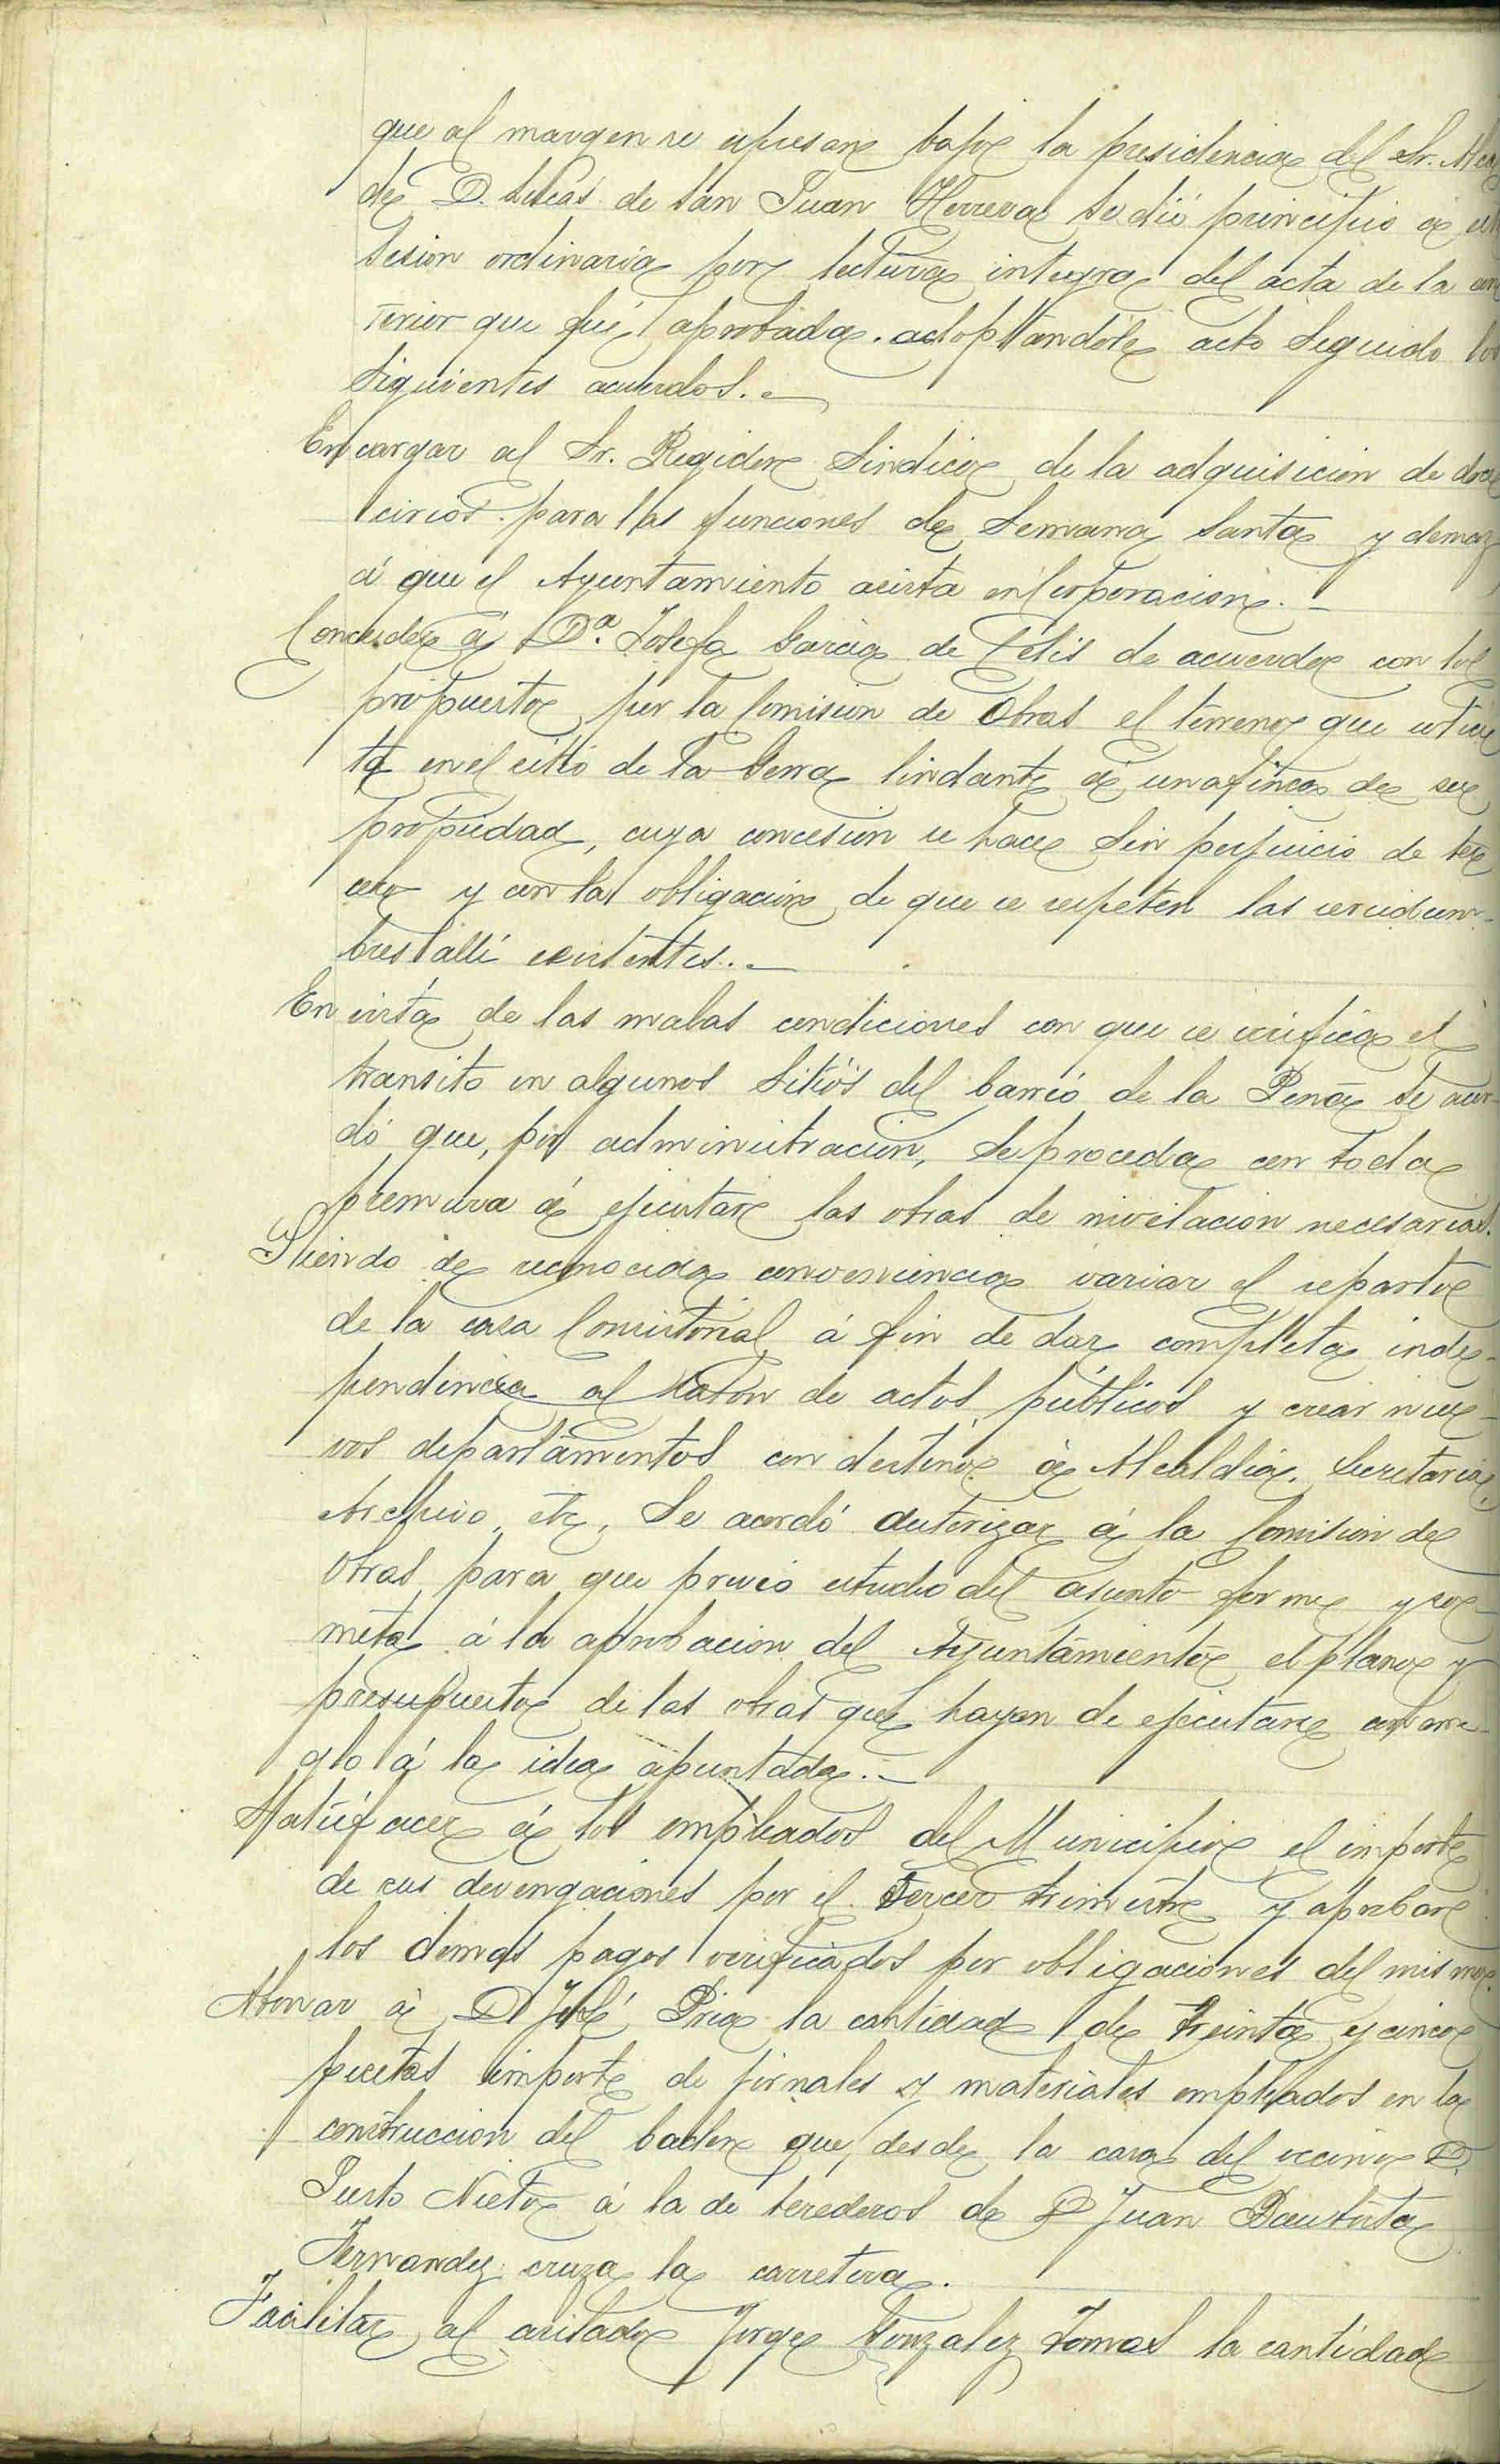 que al margen se expresan bajo la presidencia del Sr. Alcal
de D. Lucas de San Juan Herrera se dió principio a est
sesion ordinaria por lectura integra del acta de la an
terior que fué aprobada. adoptandose acto seguido los
siguientes acuerdos.
Encargar al Sr. Regidor Sindico de la adquisicion de doce
cirios para las funciones de Semana Santa y demas
á que el Ayuntamiento asista en Corporacion.
Conceder á Dª. Josefa Garcia de Celis de acuerdo con lo
propuesto por la Comision de Obras el terreno que solici
ta en el sitio de la lindante á una finca de su
propiedad, cuya concesion se hace sin perjuicio de ter
cero y con la obligacion de que se respeten las servidum-
bres alli existentes.
En vista de las malas condiciones con que se verifica el
transito en algunos sitios del barrio de la Peña se acor-
dó que, por administracion, se proceda con toda
premura á ejecutar las obras de nivelacion necesarias.
Siendo de reconocida conveniencia variar el reparto
de la casa Consistorial á fin de dar completa inde-
pendencia al salon de actos públicos y crear nue-
vos departamentos con destino á Alcaldia, Secretaria,
Archivo, etc, se acordó autorizar á la Comision de
Obras para que previo estudio del asunto forme y so-
meta á la aprobacion del Ayuntamiento el plano y
presupuesto de las obras que hayan de ejecutarse con arre-
glo á la idea apuntada.
Satisfacer á los empleados del Municipio el importe
de sus devengaciones por el tercer trimestre y aprobar
los demas pagos verificados por obligaciones del mismo.
Abonar á D José Pria la cantidad de treinta y cinco
pesetas importe de jornales y materiales empleados en la
construccion del baden que desde la casa del vecino D.
Justo Nieto á la de herederos de D Juan Bautista
Fernandez cruza la carretera.
Facilitar al asilado Jorge Gonzalez Tomas la cantidad